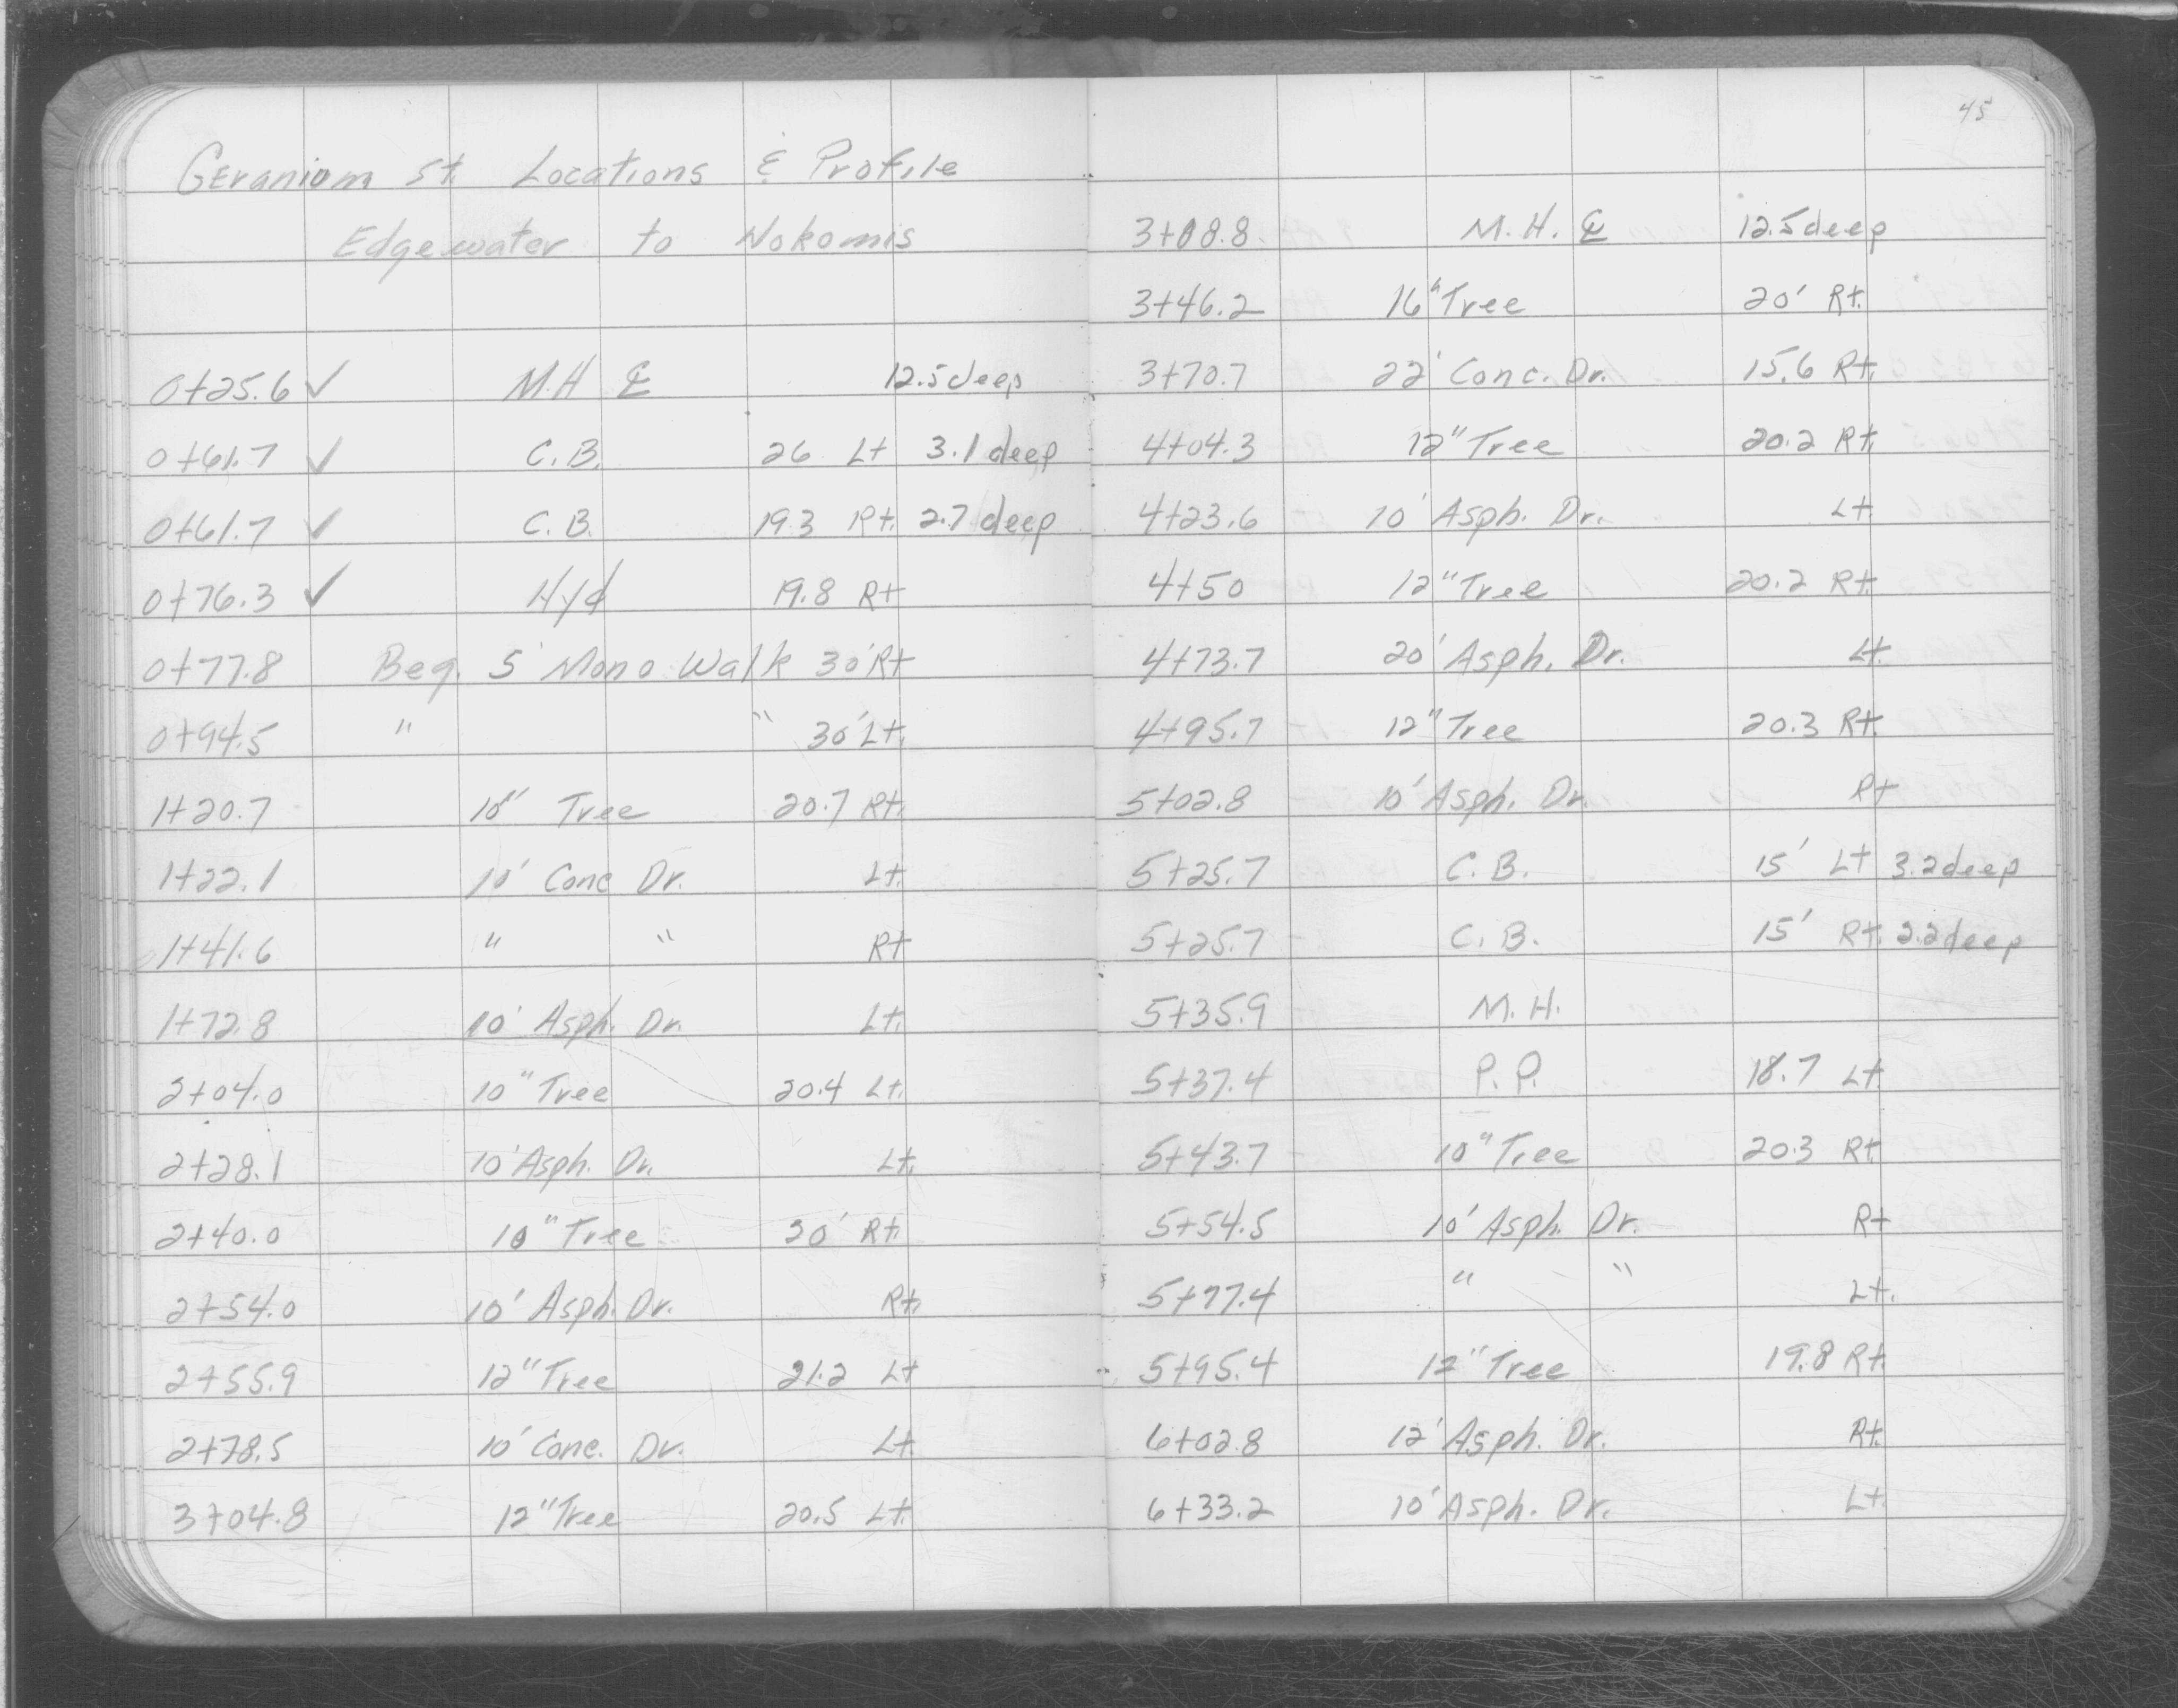 Geranium St. Locations & Profile
Edgewater to Nokomis
0+25.6 ✓ M.H ℄ 12.5 deep
0+61.7 ✓ C.B. 26 Lt 3.1 deep
0+61.7 ✓ C.B. 19.3 Rt. 2.7 deep
0+76.3 ✓ Hyd 19.8 Rt
0+77.8 Beg. 5' Mono Walk 30' Rt
0+94.5 " " 30' Lt.
1+20.7 10" Tree 20.7 Rt.
1+22.1 10' Conc Dr. Lt.
1+41.6 " " Rt
1+72.8 10' Asph. Dr. Lt.
2+04.0 10" Tree 20.4 Lt.
2+28.1 10' Asph. Dr. Lt.
2+40.0 10" Tree 20' Rt.
2+54.0 10' Asph. Dr. Rt.
2+55.9 12" Tree 21.2 Lt
2+78.5 10' Conc. Dr. Lt.
3+04.8 12" Tree 20.5 Lt.
45
3+08.8 M.H. ℄ 12.5 deep
3+46.2 16" Tree 20' Rt.
3+70.7 22' Conc. Dr. 15.6 Rt.
4+04.3 12" Tree 20.2 Rt.
4+23.6 10' Asph. Dr. Lt.
4+50 12" Tree 20.2 Rt.
4+73.7 20' Asph. Dr. Lt.
4+95.7 12" Tree 20.3 Rt.
5+02.8 10' Asph. Dr. Rt
5+25.7 C.B. 15' Lt 3.2 deep
5+25.7 C.B. 15' Rt. 2.2 deep
5+35.9 M.H.
5+37.4 P.P. 18.7 Lt.
5+43.7 10" Tree 20.3 Rt.
5+54.5 10' Asph. Dr. Rt
5+77.4 " " Lt.
5+95.4 12" Tree 19.8 Rt.
6+02.8 12' Asph. Dr. Rt.
6+33.2 10' Asph. Dr. Lt.